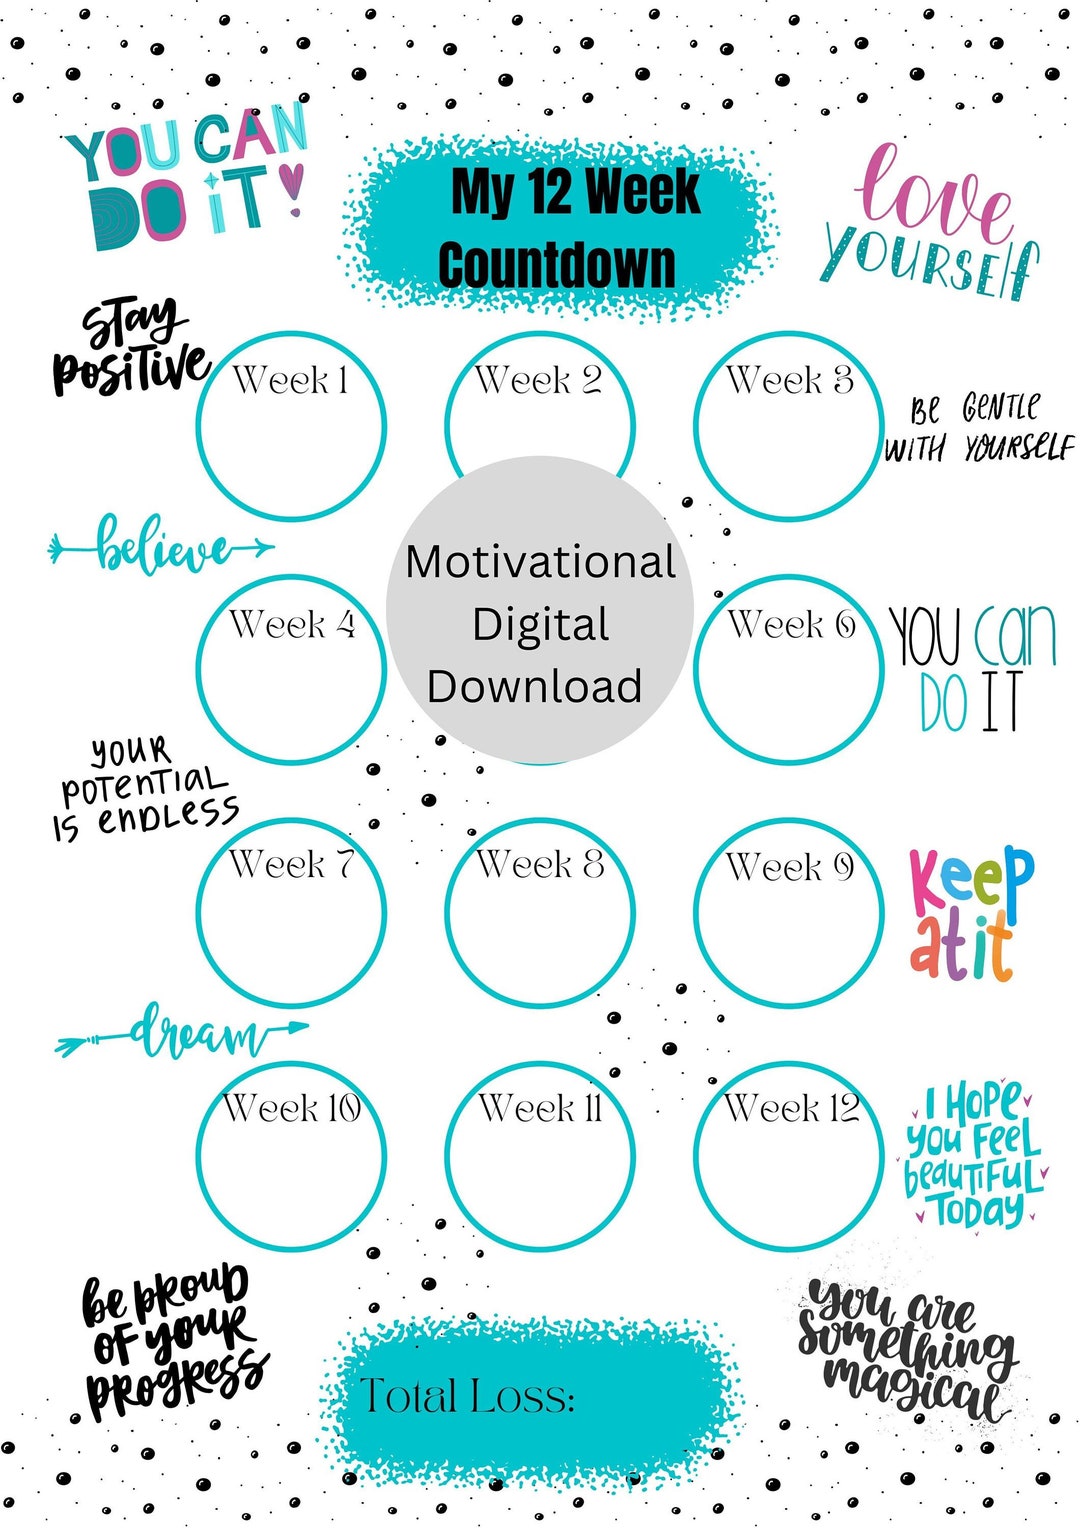 YOU CAN
DO iT!
My 12 Week
Countdown
love
YOURSElf
stay
positive
Week 1
Week 2
Week 3
BE GENTLE
WITH YOURSELF
believe
Motivational
Digital
Download
Week 4
Week 6
YOU Can
DO IT
YOUR
POTENTIAL
IS ENDLESS
Week 7
Week 8
Week 9
Keep
at it
dream
Week 10
Week 11
Week 12
I HOPE
you FEEL
beauTIFUL
TODAY
be proud
of your
progress
you are
something
magical
Total Loss: